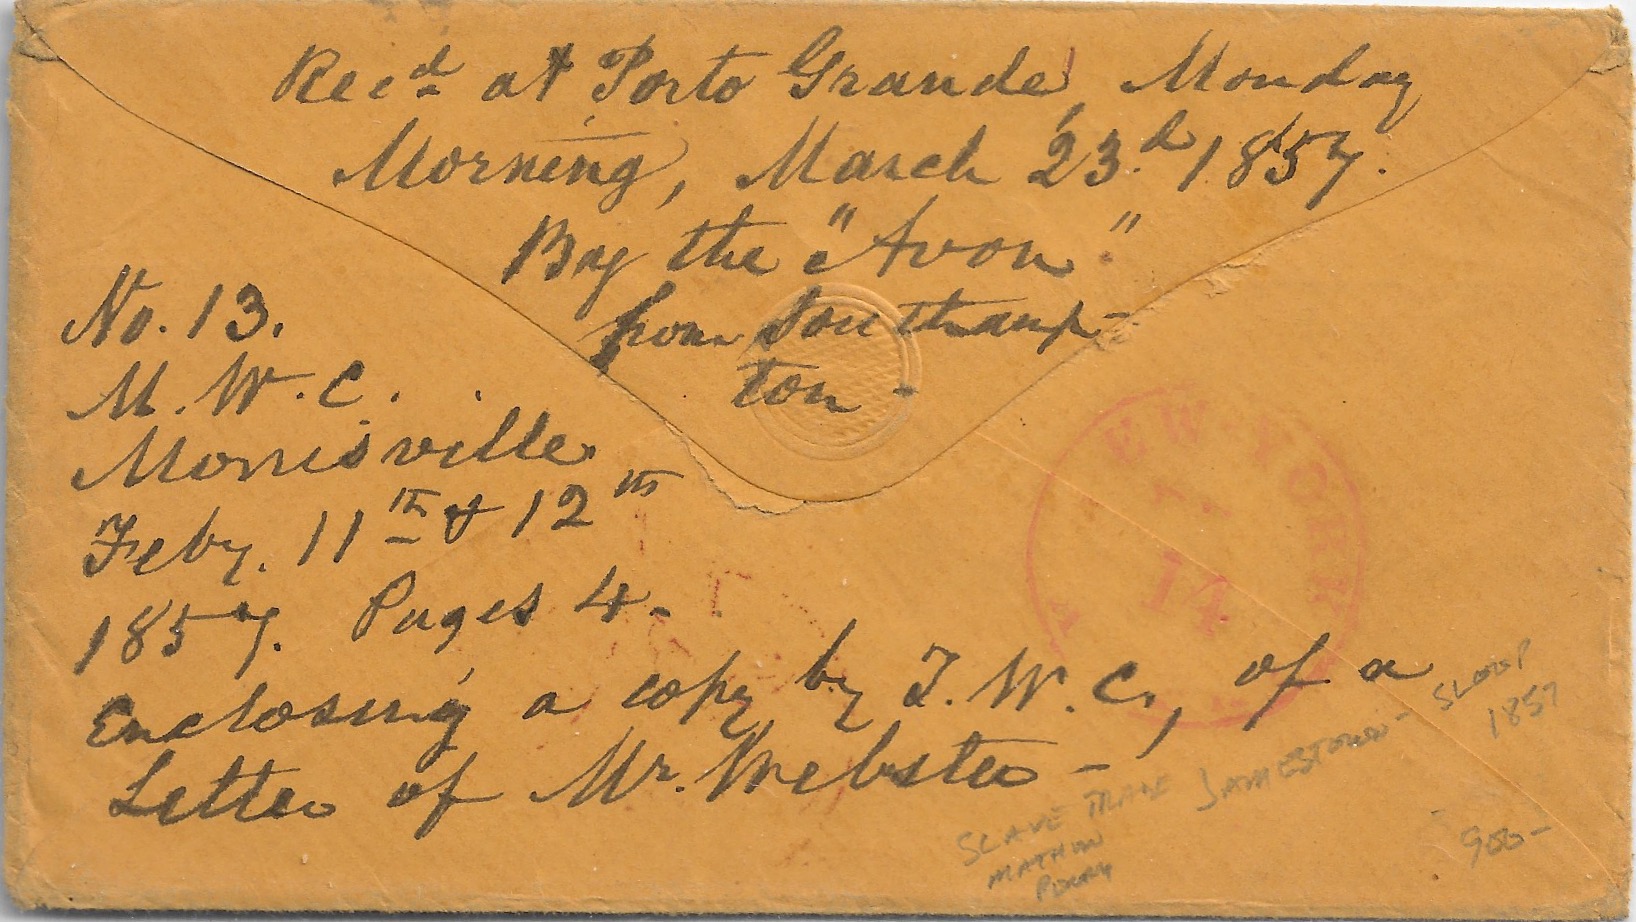 Recd at Porto Grande, Monday
Morning, March 23d 1857.
By the "Avon"
from Southamp-
ton -
No. 13.
M. W. C.
Morrisville
Feby. 11th & 12th
1857. Pages 4-
Enclosing a copy by T. W. C., of a
Letter of Mr. Webster -
EW-YORK
14
SLAVE TRADE JAMESTOWN - SLOOP
1857
900-